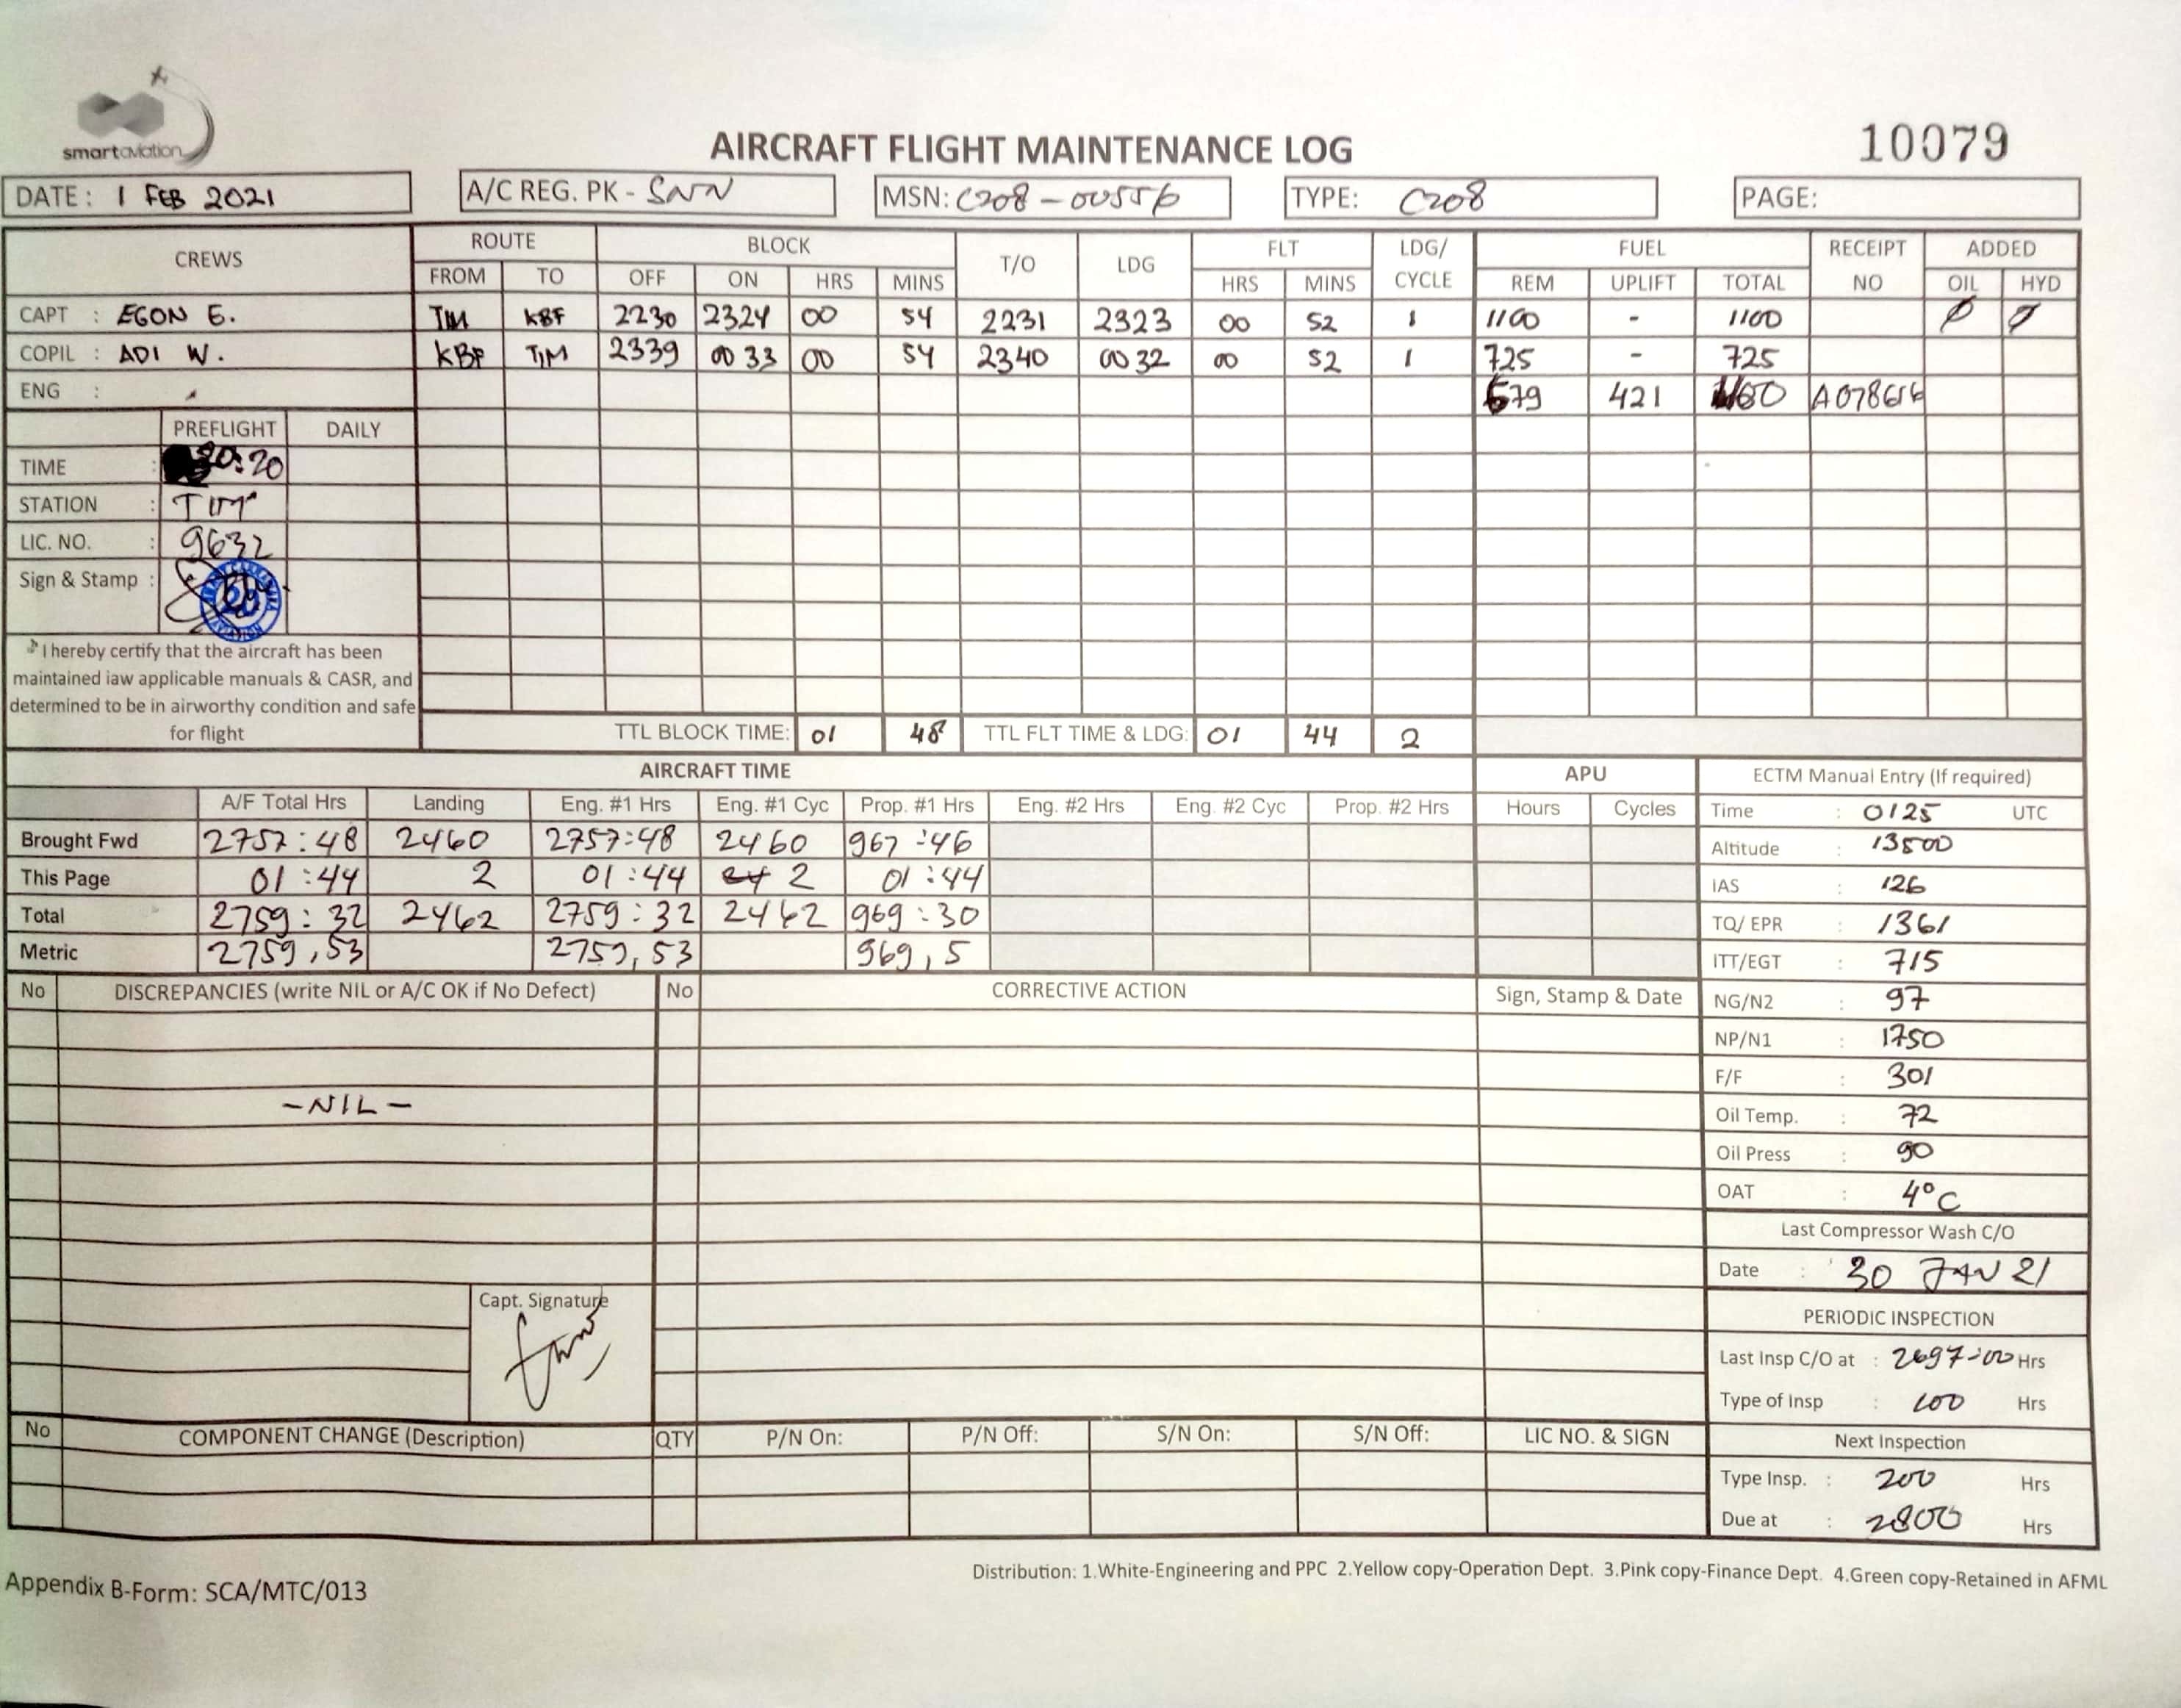 smartaviation
AIRCRAFT FLIGHT MAINTENANCE LOG
10079
DATE : 1 FEB 2021 A/C REG. PK - SNN MSN: C208-00556 TYPE: C208 PAGE:
CREWS ROUTE BLOCK T/O LDG FLT LDG/ CYCLE FUEL RECEIPT NO ADDED
FROM TO OFF ON HRS MINS HRS MINS REM UPLIFT TOTAL OIL HYD
CAPT : EGON E. TIM KBF 2230 2324 00 54 2231 2323 00 52 1 1100 - 1100 Ø Ø
COPIL : ADI W. KBF TIM 2339 0033 00 54 2340 0032 00 52 1 725 - 725
ENG : 679 421
PREFLIGHT DAILY
TIME : 20:20
STATION : TIM
LIC. NO. : 9632
Sign & Stamp :
I hereby certify that the aircraft has been
maintained iaw applicable manuals & CASR, and
determined to be in airworthy condition and safe
for flight
TTL BLOCK TIME: 01 48 TTL FLT TIME & LDG: 01 44 2
AIRCRAFT TIME APU ECTM Manual Entry (If required)
A/F Total Hrs Landing Eng. #1 Hrs Eng. #1 Cyc Prop. #1 Hrs Eng. #2 Hrs Eng. #2 Cyc Prop. #2 Hrs Hours Cycles
Brought Fwd 2757:48 2460 2757:48 2460 967:46
This Page 01:44 2 01:44 2 01:44
Total 2759:32 2462 2759:32 2462 969:30
Metric 2759,53 2759,53 969,5
Time : 0125 UTC
Altitude : 13500
IAS : 126
TQ/ EPR : 1361
ITT/EGT : 715
NG/N2 : 97
NP/N1 : 1750
F/F : 301
Oil Temp. : 72
Oil Press : 90
OAT : 4°C
Last Compressor Wash C/O
Date : 30 JAN 21
PERIODIC INSPECTION
Last Insp C/O at : 2697:00 Hrs
Type of Insp : 100 Hrs
Next Inspection
Type Insp. : 200 Hrs
Due at : 2800 Hrs
No DISCREPANCIES (write NIL or A/C OK if No Defect) No CORRECTIVE ACTION Sign, Stamp & Date
-NIL-
Capt. Signature
No COMPONENT CHANGE (Description) QTY P/N On: P/N Off: S/N On: S/N Off: LIC NO. & SIGN
Distribution: 1.White-Engineering and PPC 2.Yellow copy-Operation Dept. 3.Pink copy-Finance Dept. 4.Green copy-Retained in AFML
Appendix B-Form: SCA/MTC/013